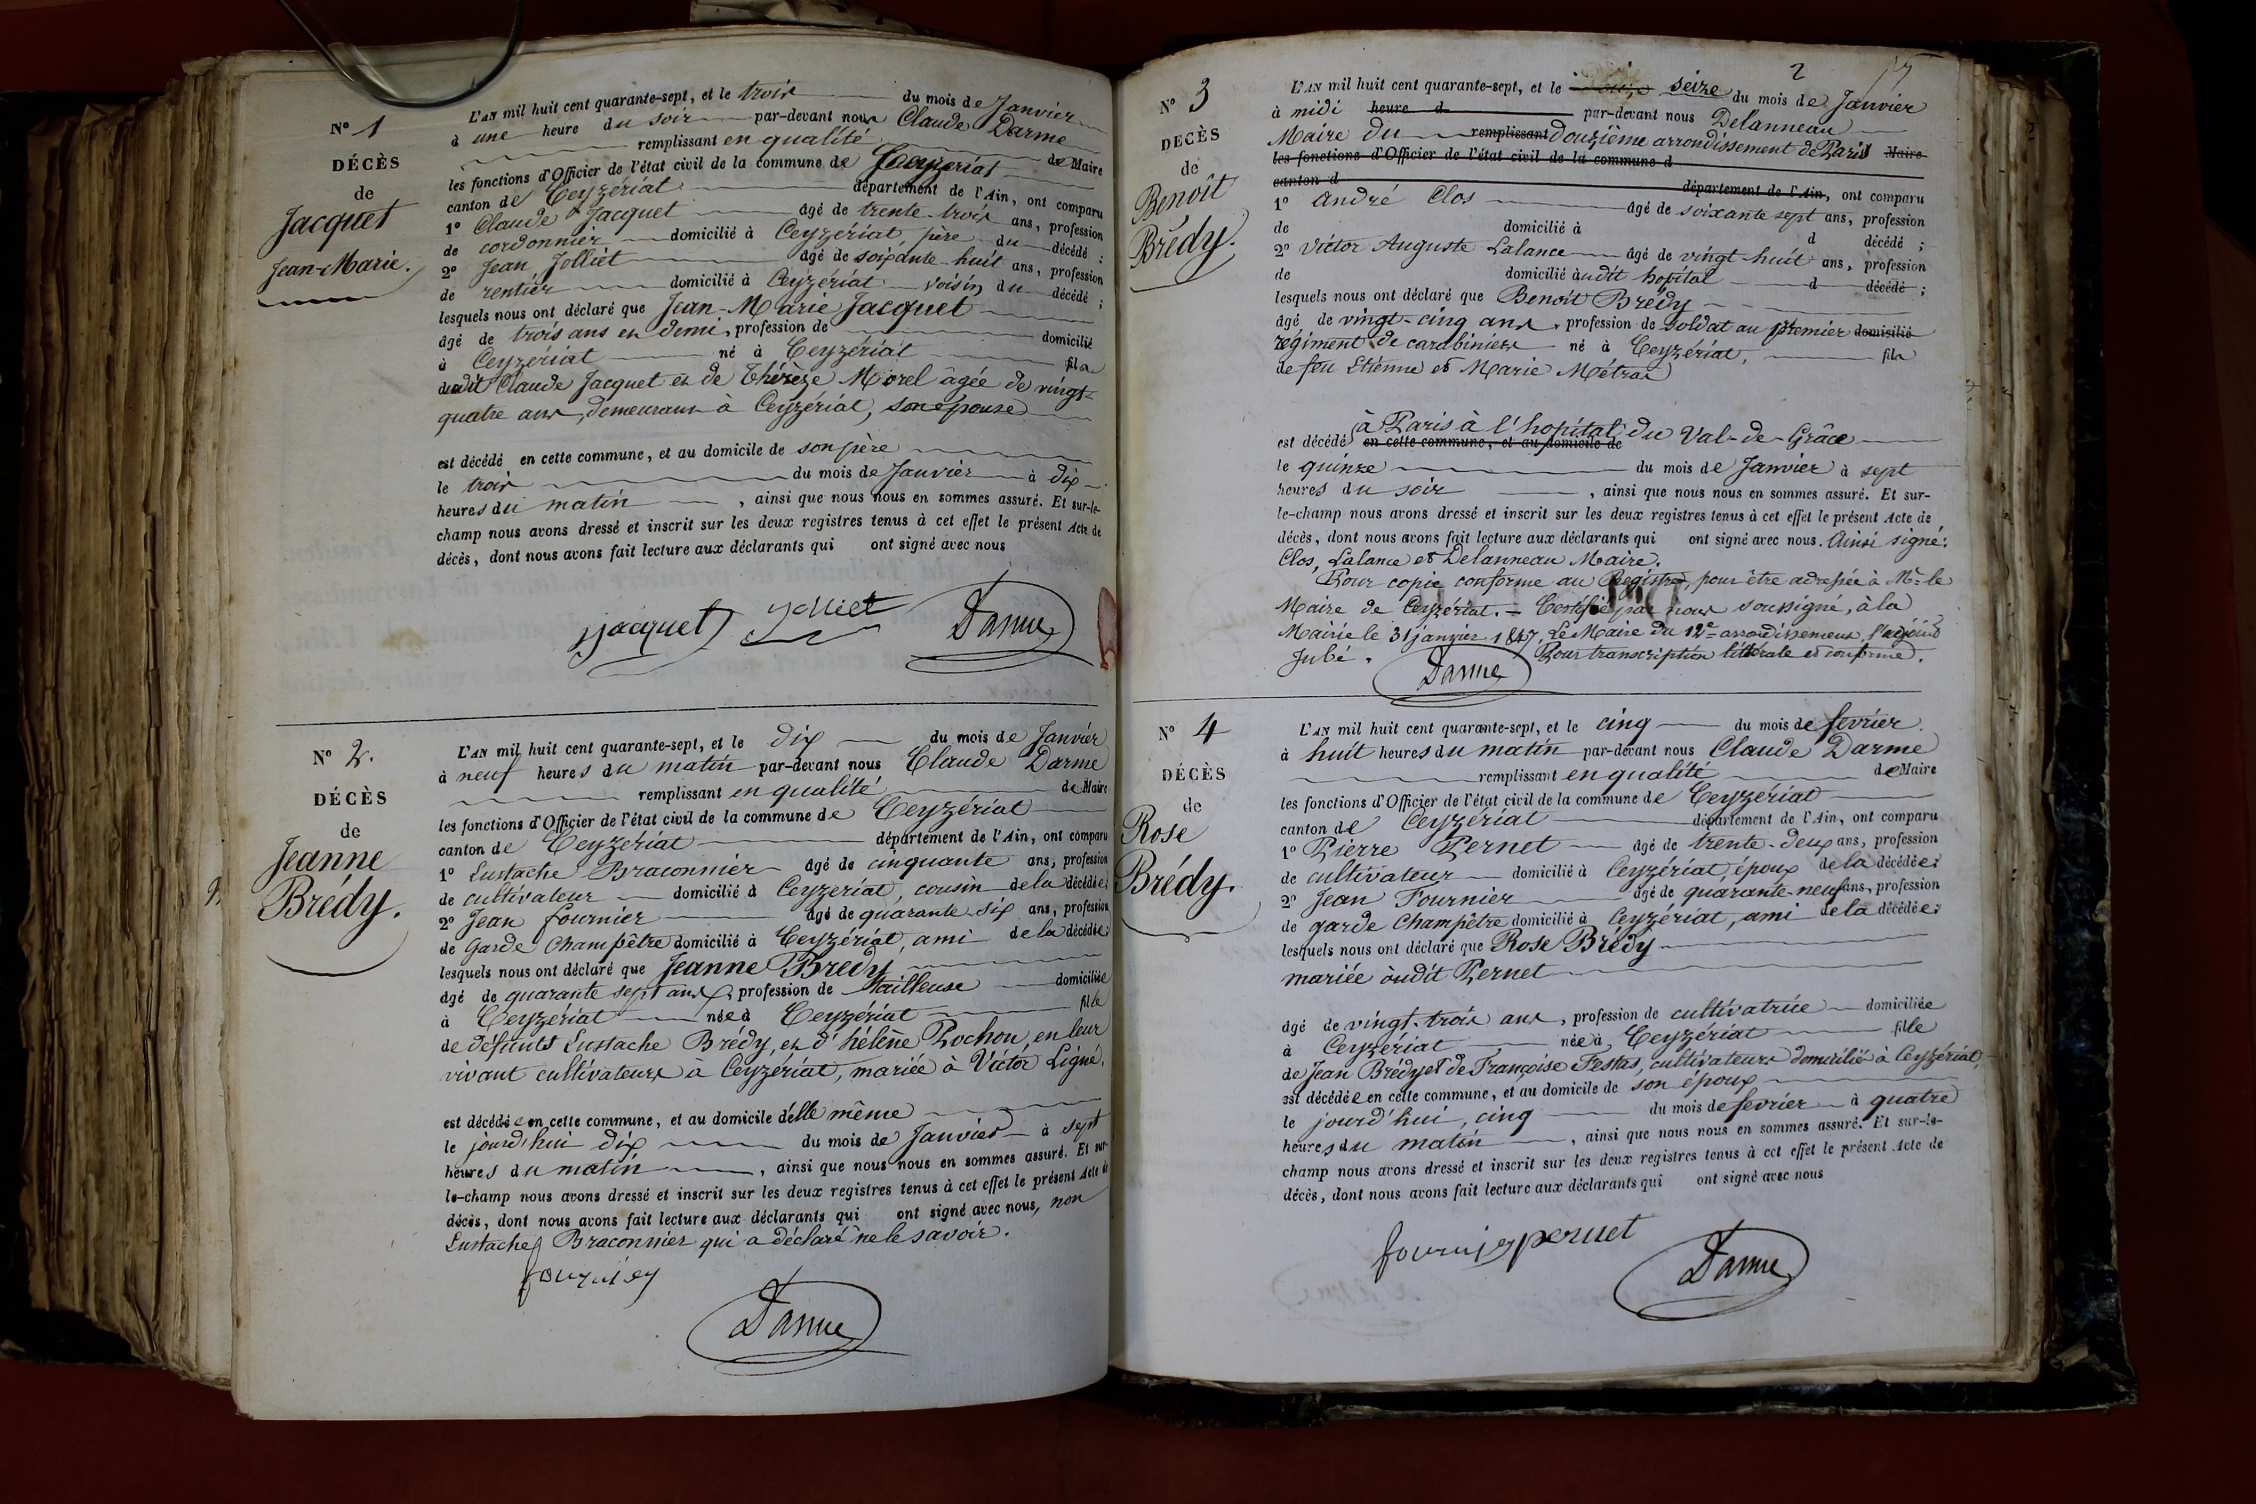 N° 1
DÉCÈS
de
Jacquet
Jean-Marie.
L'AN mil huit cent quarante-sept, et le trois du mois de Janvier
à une heure du soir par-devant nous Claude Darme
remplissant en qualité de Maire
les fonctions d'Officier de l'état civil de la commune de Ceyzériat
canton de Ceyzériat département de l'Ain, ont comparu
1° Claude Jacquet âgé de trente-trois ans, profession
de cordonnier domicilié à Ceyzériat, père du décédé ;
2° Jean Jolliet âgé de soixante-huit ans, profession
de rentier domicilié à Ceyzériat voisin du décédé ;
lesquels nous ont déclaré que Jean-Marie Jacquet
âgé de trois ans et demi, profession de domicilié
à Ceyzériat né à Ceyzériat fils
dudit Claude Jacquet et de Thérèze Morel âgée de vingt-
quatre ans, demeurant à Ceyzériat, son épouse
est décédé en cette commune, et au domicile de son père
le trois du mois de Janvier à dix
heures du matin, ainsi que nous nous en sommes assuré. Et sur-le-
champ nous avons dressé et inscrit sur les deux registres tenus à cet effet le présent Acte de
décès, dont nous avons fait lecture aux déclarants qui ont signé avec nous
jacquet jolliet Darme
N° 2.
DÉCÈS
de
Jeanne
Brédy.
L'AN mil huit cent quarante-sept, et le dix du mois de Janvier
à neuf heures du matin par-devant nous Claude Darme
remplissant en qualité de Maire
les fonctions d'Officier de l'état civil de la commune de Ceyzériat
canton de Ceyzériat département de l'Ain, ont comparu
1° Eustache Braconnier âgé de cinquante ans, profession
de cultivateur domicilié à Ceyzériat, cousin de la décédée ;
2° Jean fournier âgé de quarante-six ans, profession
de Garde Champêtre domicilié à Ceyzériat, ami de la décédée ;
lesquels nous ont déclaré que Jeanne Brédy
âgé de quarante sept ans, profession de tailleuse domiciliée
à Ceyzériat née à Ceyzériat fille
de défunts Eustache Brédy, et d'hélène Rochon, en leur
vivant cultivateurs à Ceyzériat, mariée à Victor Ligné.
est décédée en cette commune, et au domicile d'elle même
le jourd'hui dix du mois de Janvier à sept
heures du matin, ainsi que nous nous en sommes assuré. Et sur-
le-champ nous avons dressé et inscrit sur les deux registres tenus à cet effet le présent Acte de
décès, dont nous avons fait lecture aux déclarants qui ont signé avec nous, non
Eustache Braconnier qui a déclaré ne le savoir.
fournier
Darme
2
N° 3
DÉCÈS
de
Benoît
Brédy.
L'AN mil huit cent quarante-sept, et le seize du mois de Janvier
à midi heure d par-devant nous Delanneau
Maire du remplissant douzième arrondissement de Paris Maire
les fonctions d'Officier de l'état civil de la commune d
canton d département de l'Ain, ont comparu
1° André Clos âgé de soixante sept ans, profession
de domicilié à d décédé ;
2° Victor Auguste Lalance âgé de vingt-huit ans, profession
de domicilié audit hopital d décédé ;
lesquels nous ont déclaré que Benoît Brédy
âgé de vingt-cinq ans, profession de soldat au premier domicilié
régiment de carabiniers né à Ceyzériat, fils
de feu Etienne et Marie Métras
à Paris à l'hopital du Val-de-Grâce
est décédé en cette commune, et au domicile de
le quinze du mois de Janvier à sept
heures du soir, ainsi que nous nous en sommes assuré. Et sur-
le-champ nous avons dressé et inscrit sur les deux registres tenus à cet effet le présent Acte de
décès, dont nous avons fait lecture aux déclarants qui ont signé avec nous. Ainsi signé:
Clos, Lalance et Delanneau Maire.
Pour copie conforme au Registre, pour être adressée à Mr le
Maire de Ceyzériat. — Certifié par nous soussigné, à la
Mairie le 31 janvier 1847, Le Maire du 12e arrondissement, l'adjoint
Jubé. Pour transcription littérale et conforme.
Darme
N° 4
DÉCÈS
de
Rose
Brédy.
L'AN mil huit cent quarante-sept, et le cinq du mois de fevrier
à huit heures du matin par-devant nous Claude Darme
remplissant en qualité de Maire
les fonctions d'Officier de l'état civil de la commune de Ceyzériat
canton de Ceyzériat département de l'Ain, ont comparu
1° Pierre Pernet âgé de trente-deux ans, profession
de cultivateur domicilié à Ceyzériat, époux de la décédée ;
2° Jean Fournier âgé de quarante-neuf ans, profession
de garde Champêtre domicilié à Ceyzériat, ami de la décédée ;
lesquels nous ont déclaré que Rose Brédy
mariée audit Pernet
âgé de vingt-trois ans, profession de cultivatrice domiciliée
à Ceyzériat née à Ceyzériat fille
de Jean Brédy et de Françoise Festas, cultivateurs domiciliés à Ceyzériat,
est décédée en cette commune, et au domicile de son époux
le jourd'hui, cinq du mois de fevrier à quatre
heures du matin, ainsi que nous nous en sommes assuré. Et sur-le-
champ nous avons dressé et inscrit sur les deux registres tenus à cet effet le présent Acte de
décès, dont nous avons fait lecture aux déclarants qui ont signé avec nous
fournier pernet
Darme